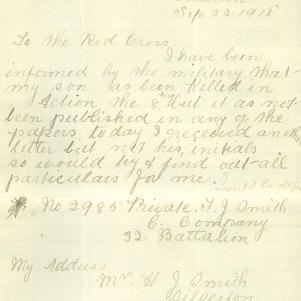 Sep 22. 1918
To the Red Cross
I have been
informed by the military that
my son as been killed in
action the 8, but it as not
been published in any of the
papers, today I received another
letter but not his, initials
so would try & find out all
particulars for me. I
would be
No 2985 Private. T. J Smith
C. Company
32. Battalion
My Address
H. J Smith
Silverton